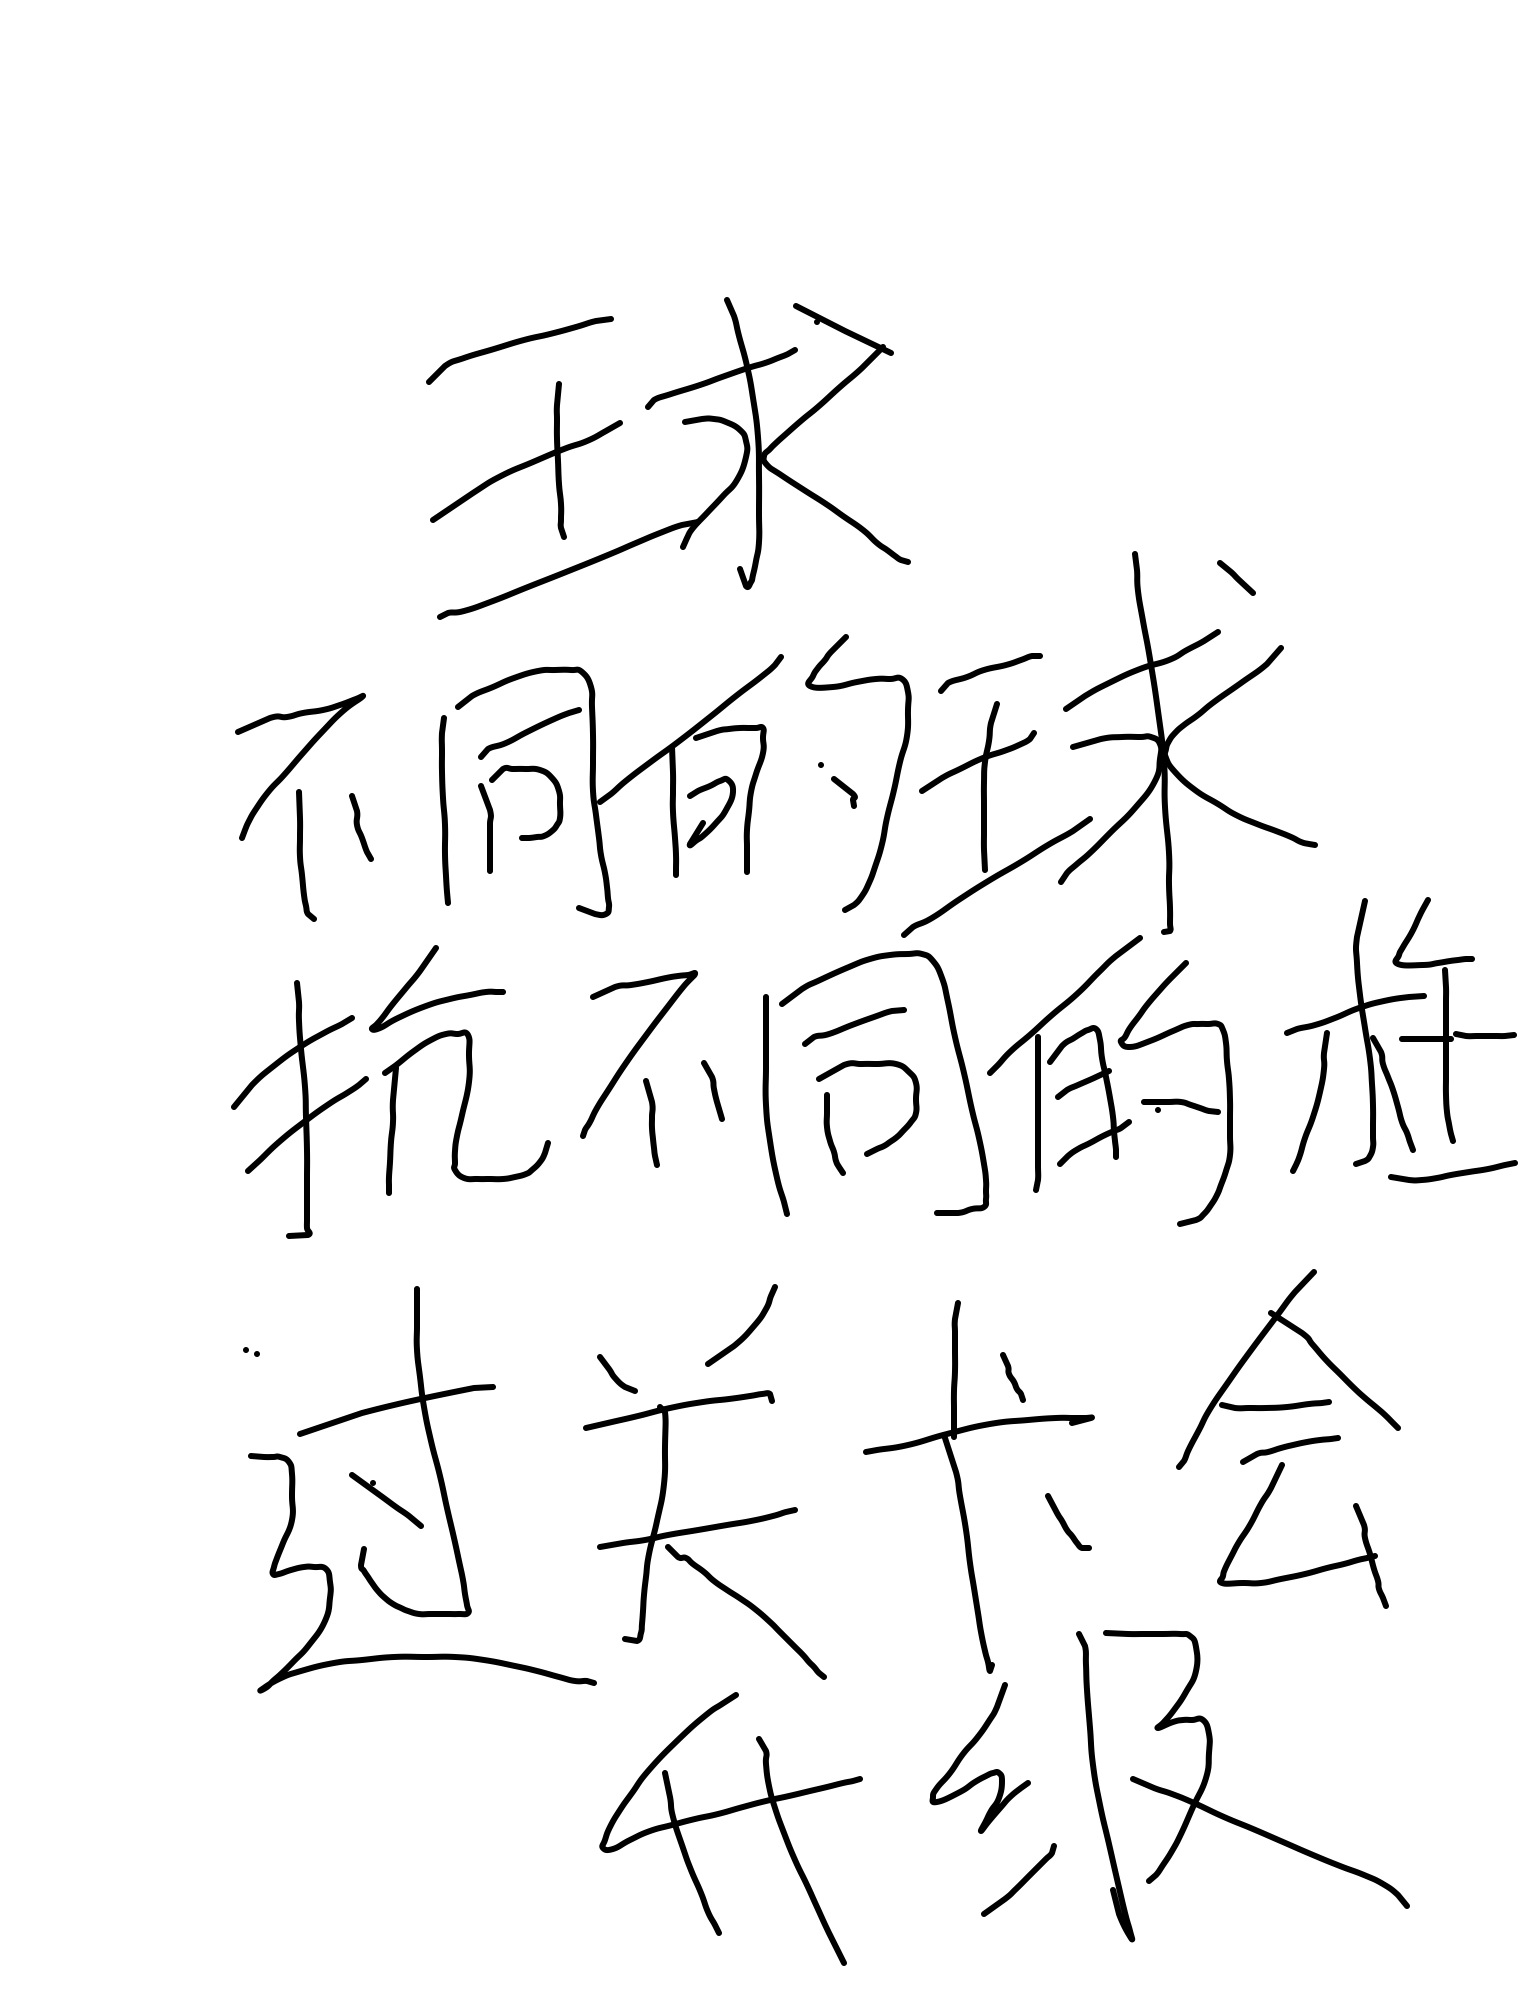 球
不同的球
扰不同的桩
过关才会
升级